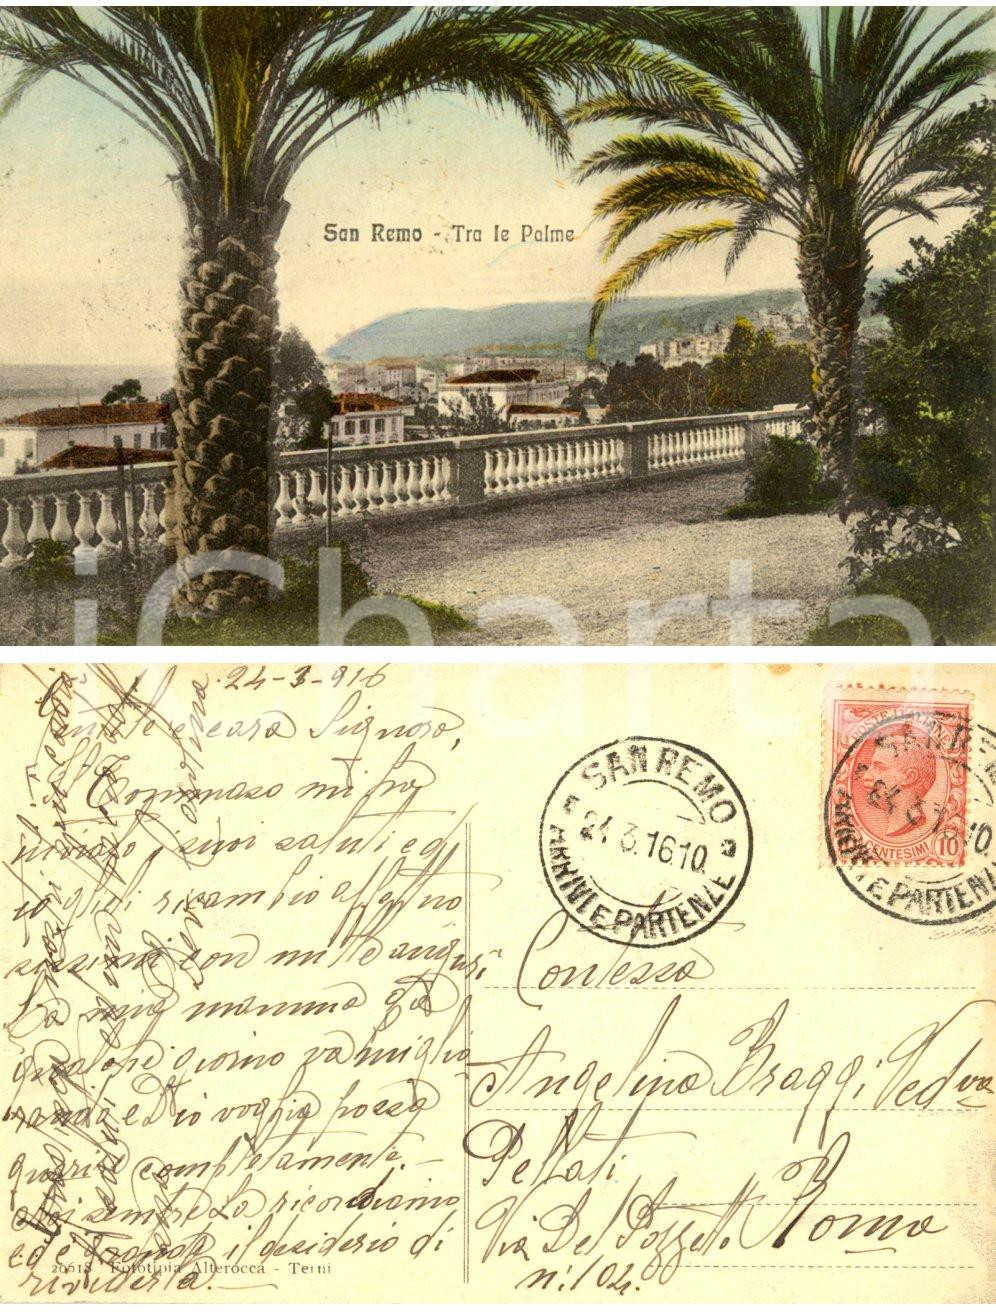 San Remo - Tra le Palme
iCharta
24-3-916
cara Signora,
Tommaso mi ha
inviato i suoi saluti ed
io glieli ricambio affettuo
sissimi con mille auguri
La mia mamma già
qualche giorno va miglio
rando e Dio voglia possa
guarire completamente.-
Noi sempre La ricordiamo
ed è grande il desiderio di
rivederla.-
20618 Fototipia Alterocca - Terni
SAN REMO
24.3.16.10
ARRIVI E PARTENZE
POSTE ITALIANE
CENTESIMI 10
SAN REMO
24.3.16.10
ARRIVI E PARTENZE
Contessa
Angelina Braggi Ved.va
Pellati
Via Del Pozzetto Roma
n: 104.